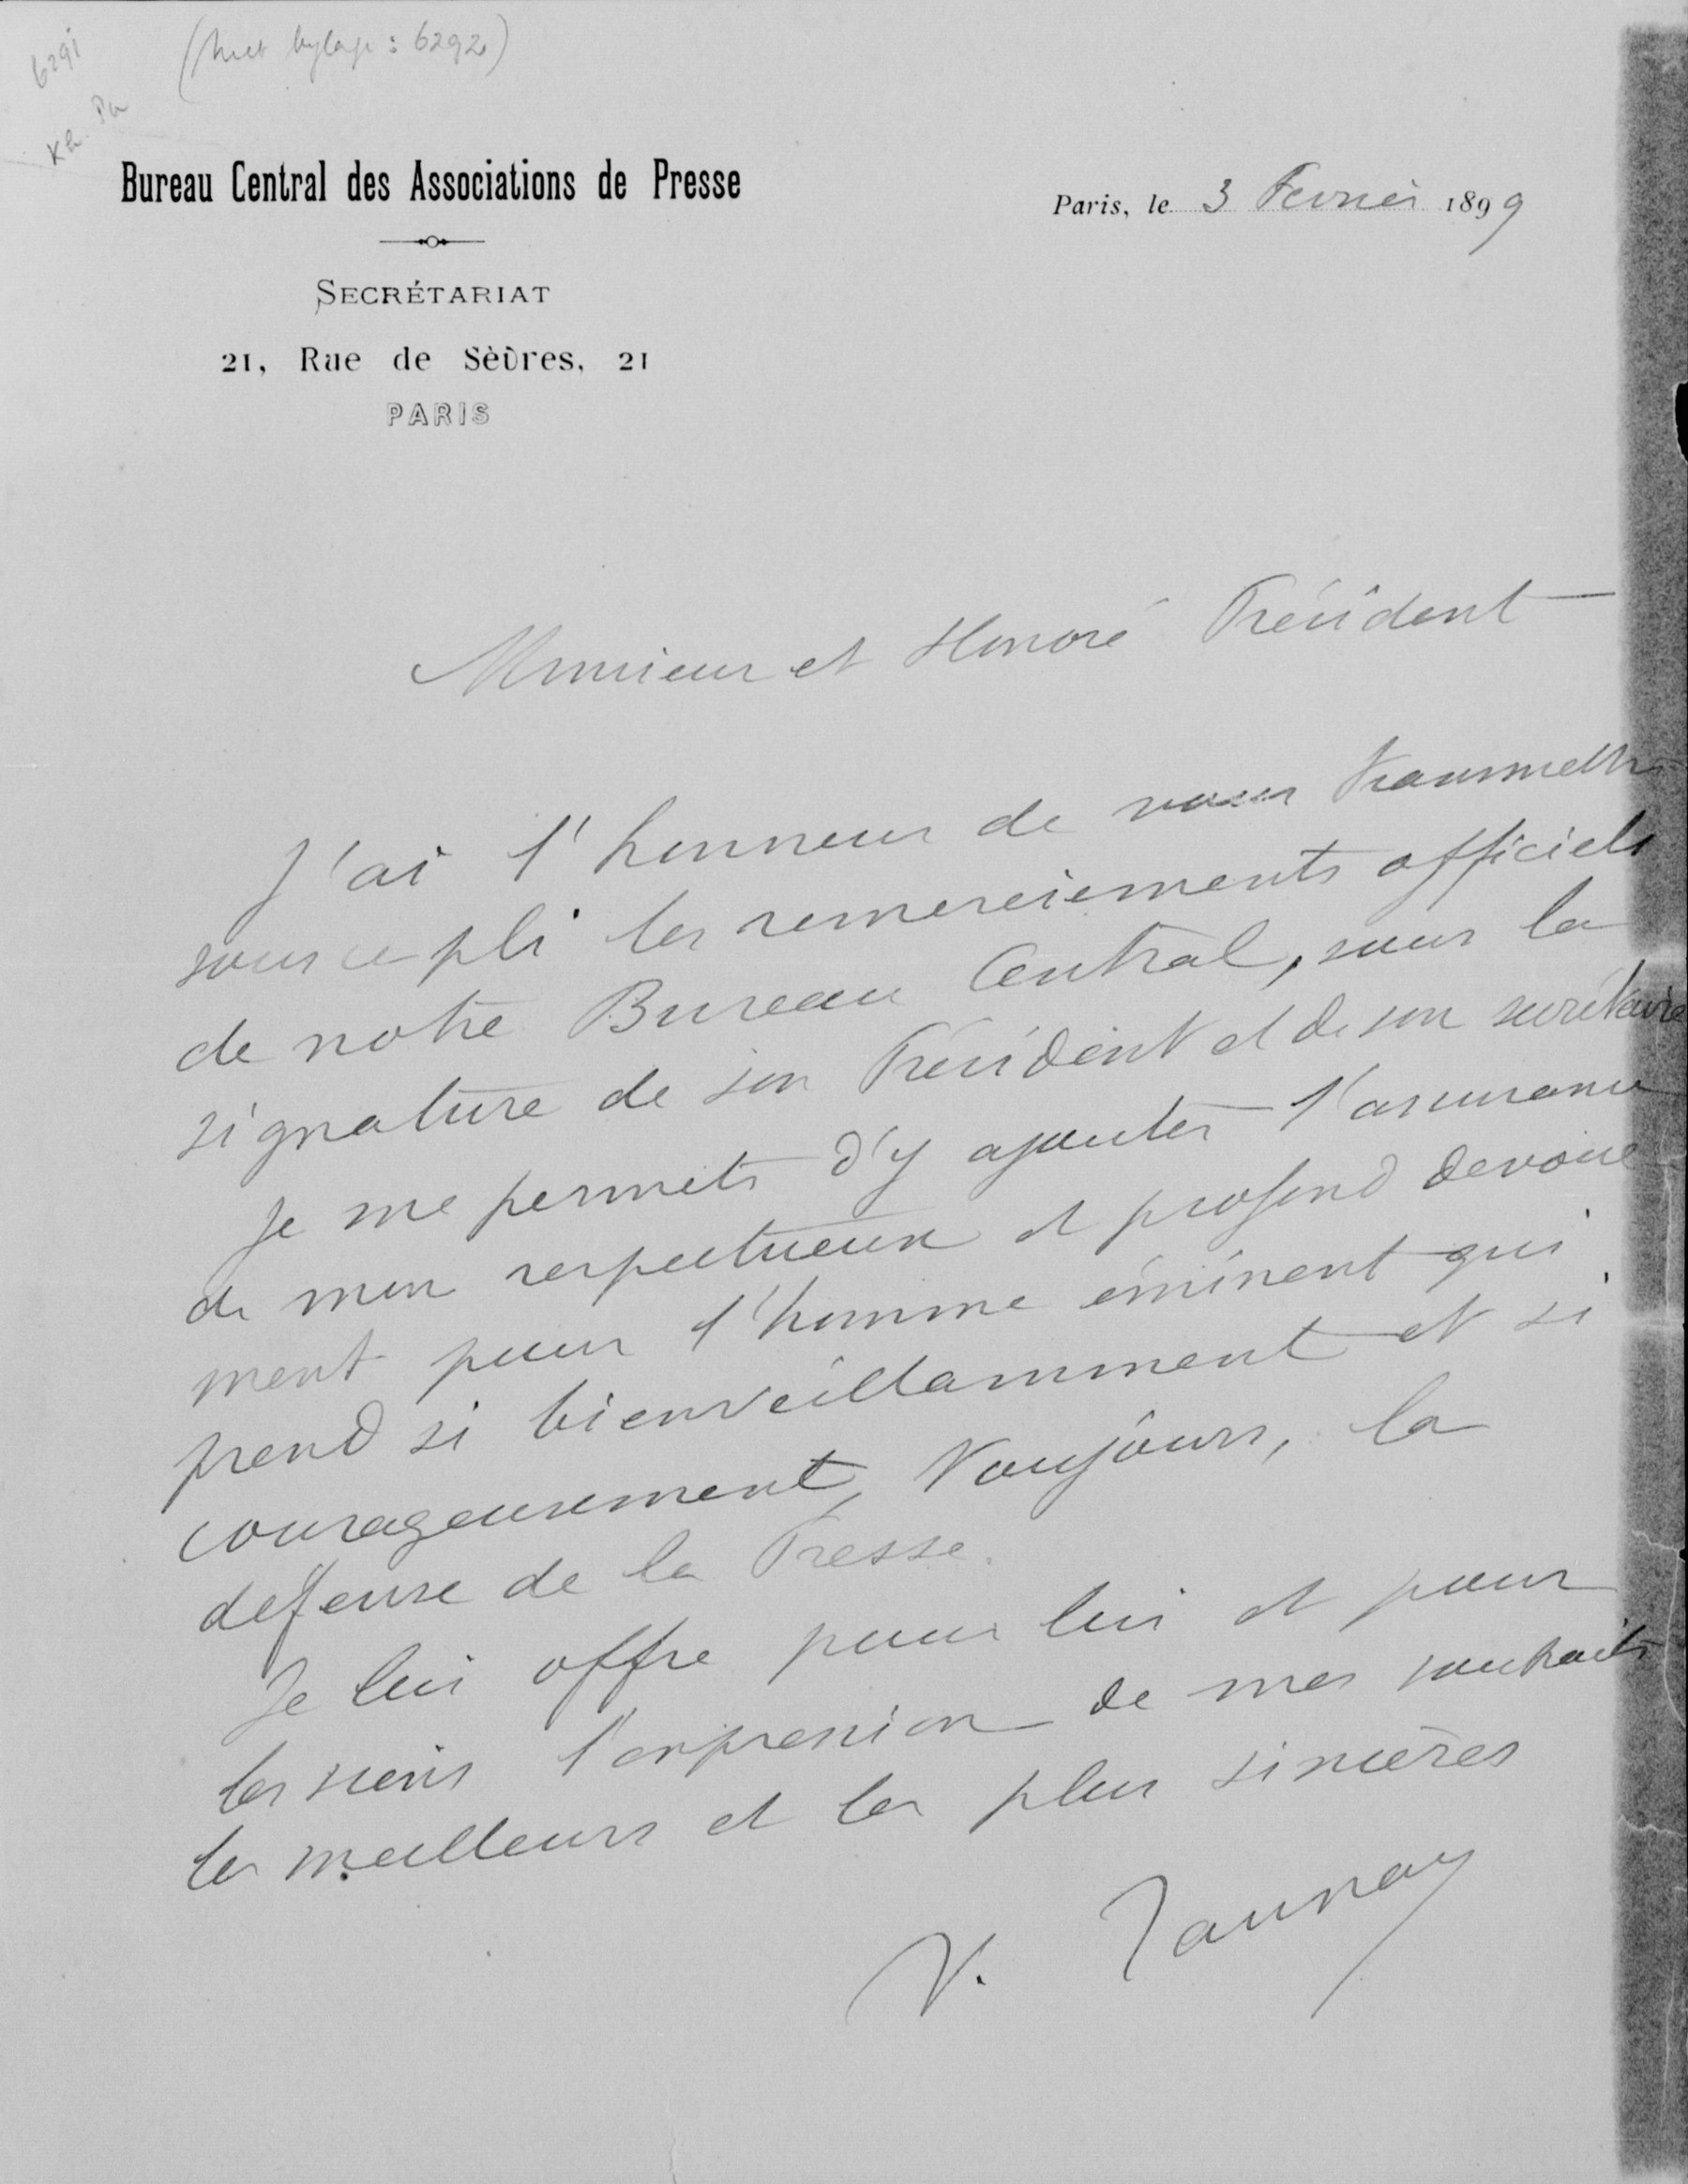 6291
(met bylage: 6292)
Kl. Pa
Bureau Central des Associations de Presse
Paris, le 3 Fevrier 1899
SECRÉTARIAT
21, Rue de Sèvres, 21
PARIS
Monsieur et Honoré Président
J'ai l'honneur de vous transmettre
sous ce pli les remerciements officiels
de notre Bureau Central, sous la
signature de son Président et de son secrétaire
Je me permets d'y ajouter l'assurance
de mon respectueux et profond devoue
ment pour l'homme éminent qui
prend si bienveillamment et si
courageusement, toujours, la
défense de la Presse.
Je lui offre pour lui et pour
les siens l'expression de mes souhaits
les meilleurs et les plus sincères
V. Taunay